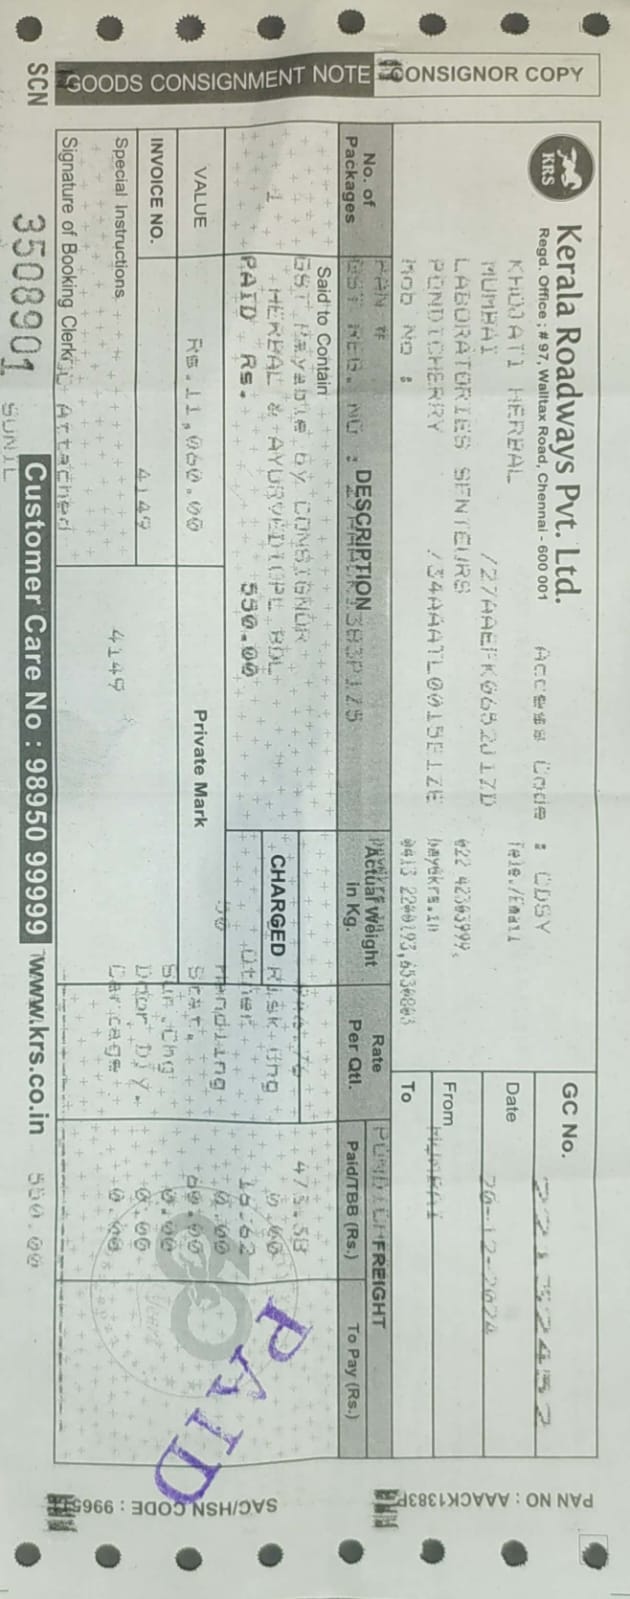 GOODS CONSIGNMENT NOTE
CONSIGNOR COPY
KRS
Kerala Roadways Pvt. Ltd.
Regd. Office : # 97, Walltax Road, Chennai - 600 001
Access Code : CDSY
GC No.
KHOJATI HERBAL
Tele./Email
Date
20-12-2024
MUMBAI
022 42303999,
From
MUMBAI
LABORATORIES SENTEURS
PONDICHERRY
To
Mob No :
PAN #
No. of Packages
DESCRIPTION
Said to Contain
Actual Weight in Kg.
Rate Per Qtl.
FREIGHT
Paid/TBB (Rs.)
To Pay (Rs.)
GST Payable by CONSIGNOR
473.38
1
HERBAL & AYURVEDIC
CHARGED
Risk Chg
0.00
PAID Rs. 550.00
Other
16.62
Handling
0.00
VALUE
Rs.11,060.00
Private Mark
Stat.
60.00
Sur.Chg
0.00
INVOICE NO.
4149
Door Dly.
0.00
Special Instructions
4149
Carriage
0.00
Signature of Booking Clerk
Attached
PAID
SCN
3508901
Customer Care No : 98950 99999
www.krs.co.in
550.00
SUNIL
PAN NO : AAACK1383P
SAC/HSN CODE : 9965